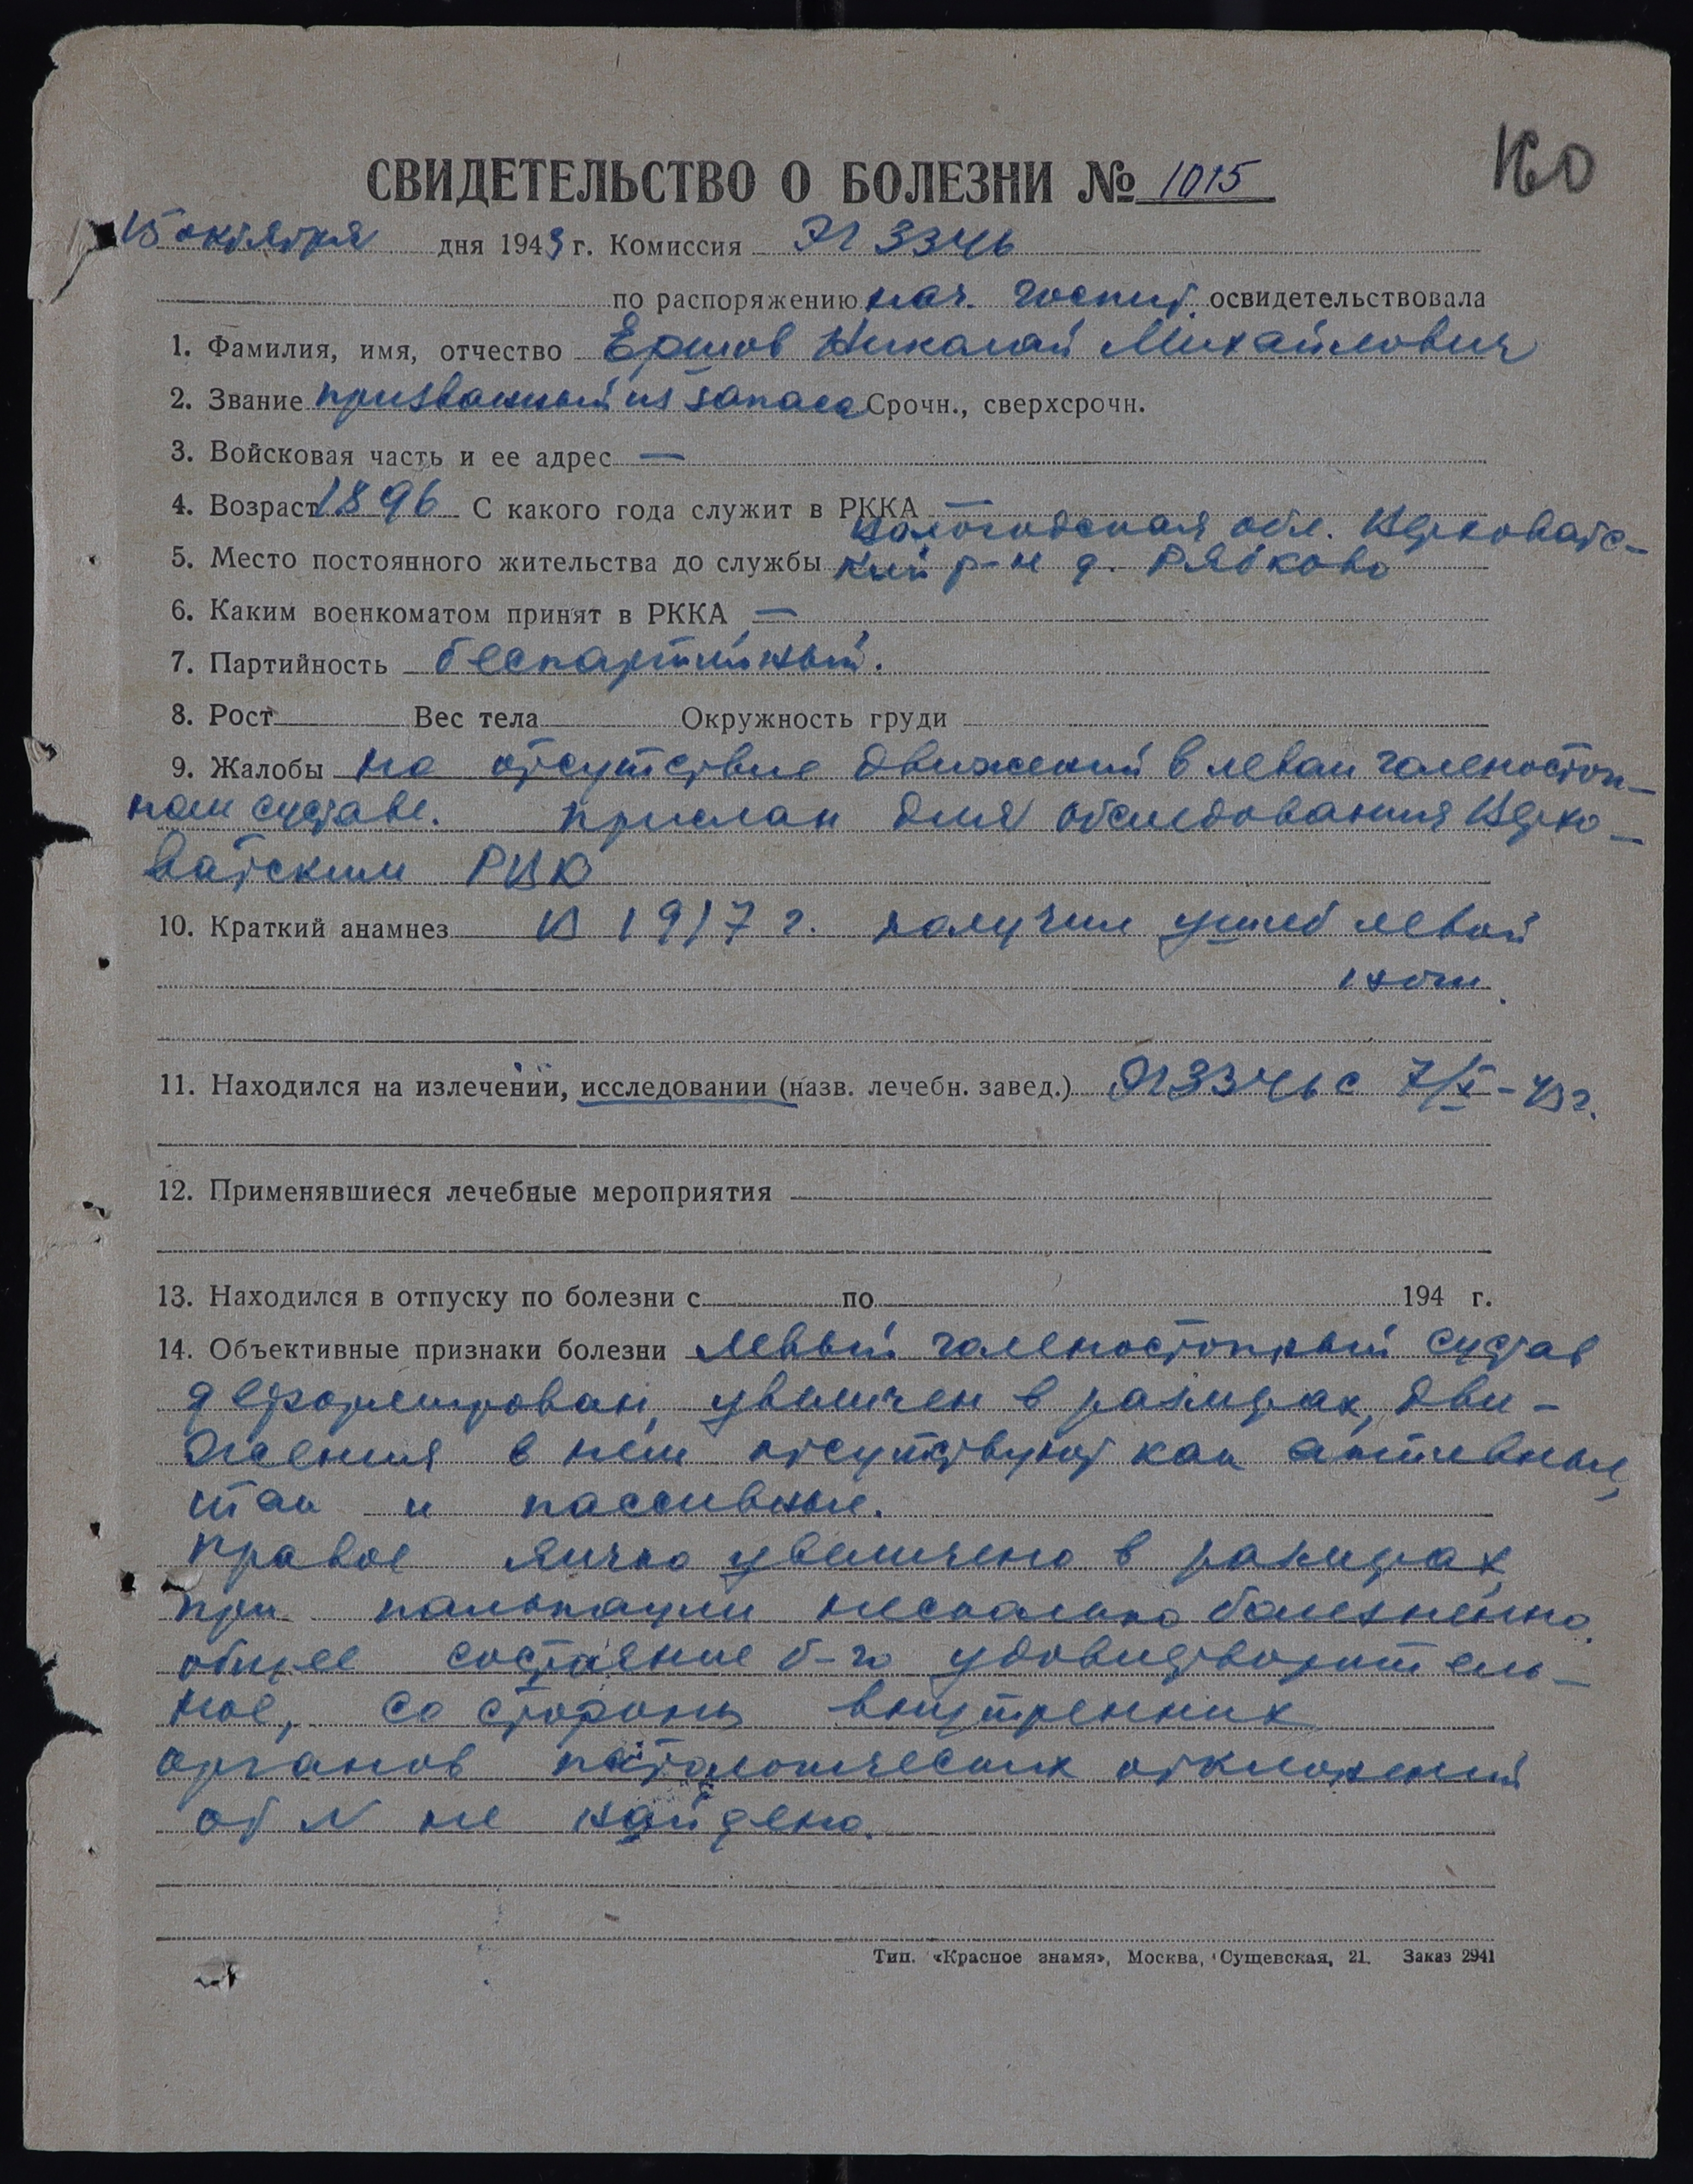 160
СВИДЕТЕЛЬСТВО О БОЛЕЗНИ № 1015
15 октября дня 1943 г. Комиссия ЭГ 3346
по распоряжению нач. госпит. освидетельствовала
1. Фамилия, имя, отчество Ершов Николай Михайлович
2. Звание призванный из запаса Срочн., сверхсрочн.
3. Войсковая часть и ее адрес —
4. Возраст 1896 С какого года служит в РККА —
Вологодская обл. Верховатс-
5. Место постоянного жительства до службы кий р-н д. Рябково
6. Каким военкоматом принят в РККА —
7. Партийность беспартийный.
8. Рост Вес тела Окружность груди
9. Жалобы на отсутствие движений в левом голеностоп-
ном суставе. Прислан для обследования Верхо-
ватским РВК
10. Краткий анамнез В 1917 г. получил ушиб левой
ноги.
11. Находился на излечении, исследовании (назв. лечебн. завед.) ЭГ 3346 с 7/X-43 г.
12. Применявшиеся лечебные мероприятия
13. Находился в отпуску по болезни с по 194 г.
14. Объективные признаки болезни Левый голеностопный сустав
деформирован, увеличен в размерах, дви-
жения в нем отсутствуют как активные,
так и пассивные.
Правое яичко увеличено в размерах,
при пальпации несколько болезненно.
общее состояние б-го удовлетворитель-
ное, со стороны внутренних
органов патологических отклонений
от N не найдено.
Тип. «Красное знамя», Москва, Сущевская, 21. Заказ 2941